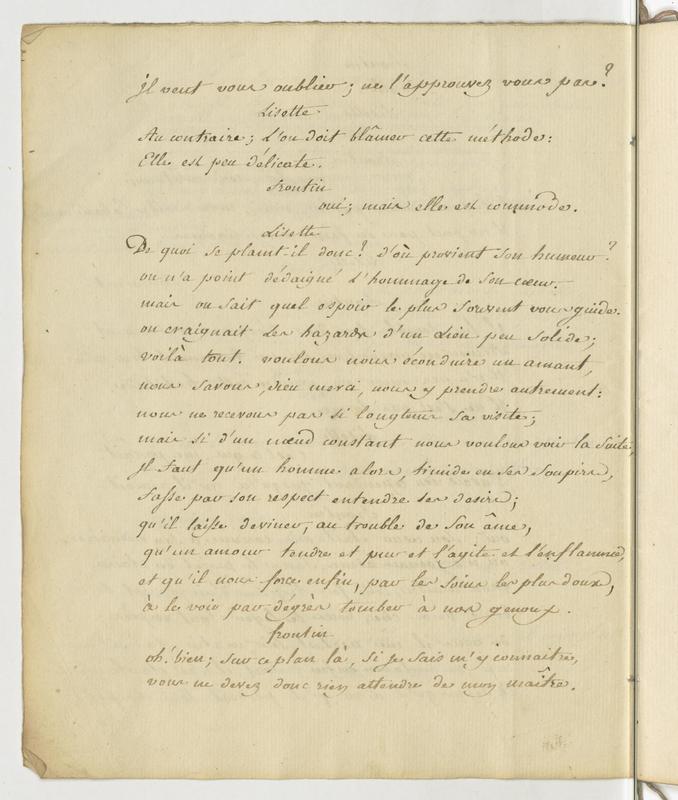 il veut vous oublier; ne l'approuvez vous pas?
Lisette
Au contraire; l'on doit blâmer cette méthode:
Elle est peu délicate.
Frontin
oui; mais elle est commode.
Lisette
De quoi se plaint-il donc? d'où provient son humeur?
on n'a point dédaigné l'hommage de son cœur.
mais on sait quel espoir le plus souvent vous guide.
on craignait les hazards d'un lien peu solide;
voilà tout. voulons nous éconduire un amant,
nous savons, dieu merci, nous y prendre autrement:
nous ne recevons pas si longtems sa visite;
mais si d'un nœud constant nous voulons voir la suite,
il faut qu'un homme alors, timide en ses soupirs,
fasse par son respect entendre ses desirs;
qu'il laisse deviner, au trouble de son âme,
qu'un amour tendre et pur et l'agite et l'enflamme,
et qu'il nous force enfin, par les soins les plus doux,
à le voir par dégrès tomber à nos genoux.
frontin
oh! bien; sur ce plan là, si je sais m'y connaître,
vous ne devez donc rien attendre de mon maître.